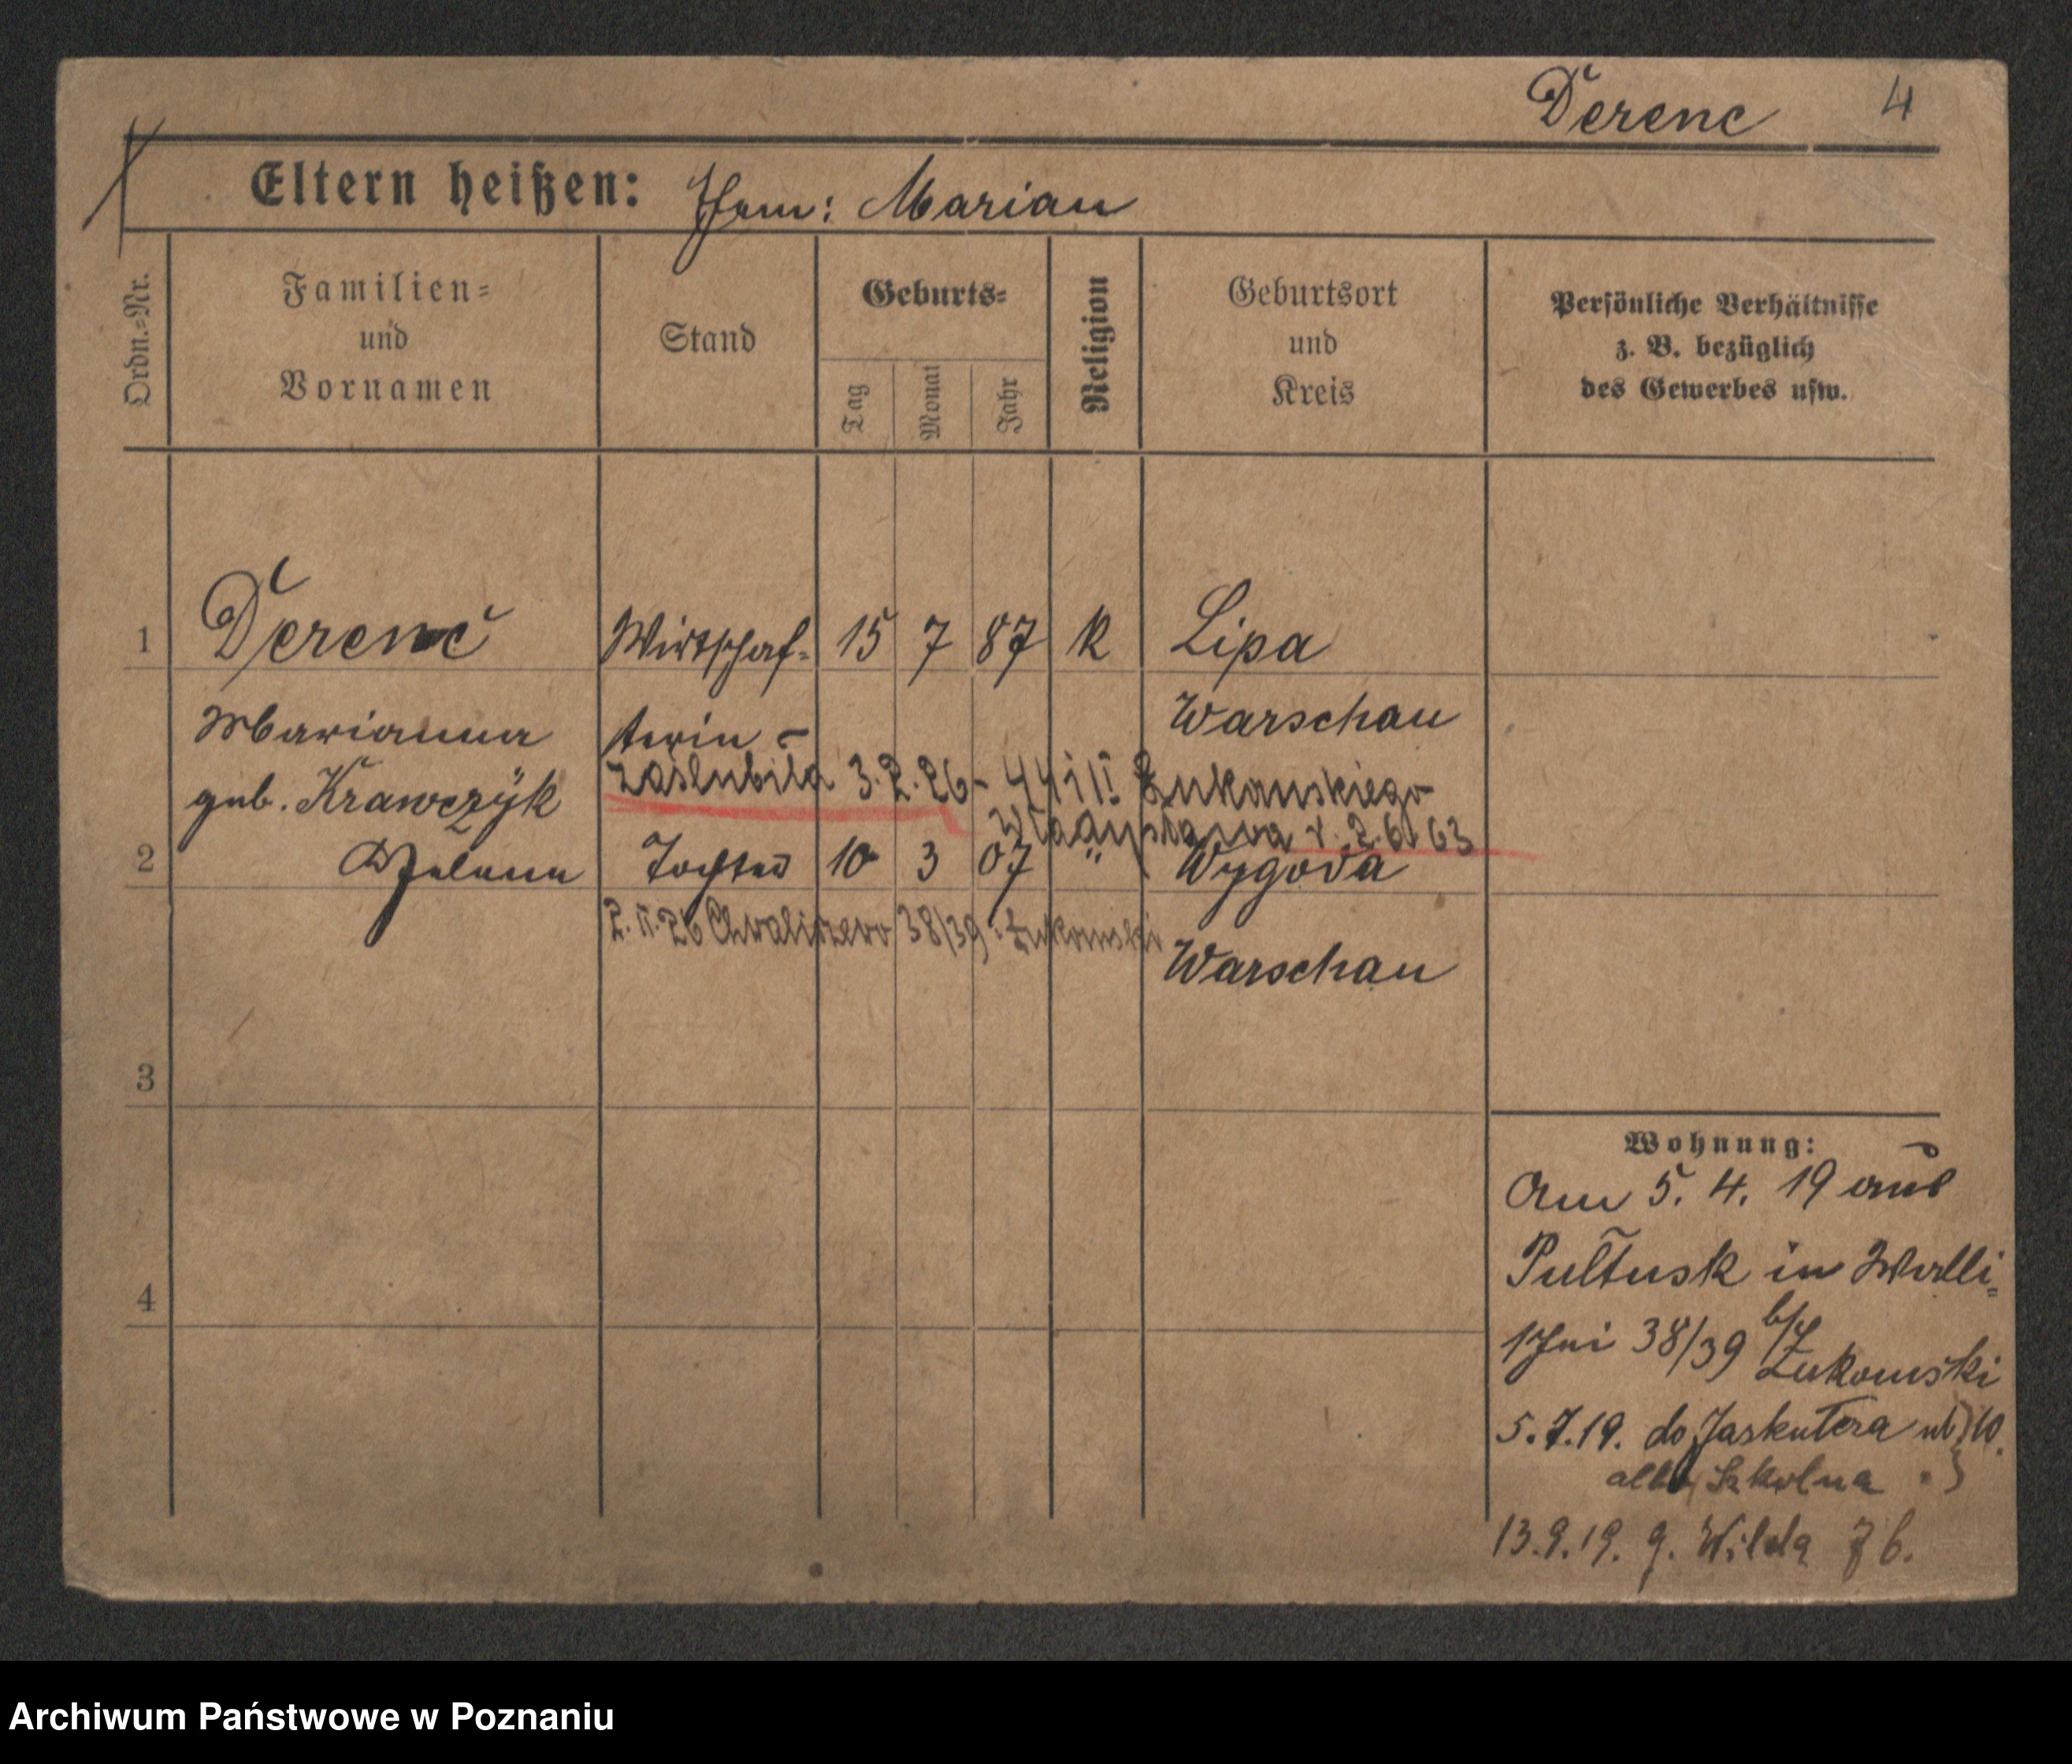 Derenc 4
Eltern heißen: Ehem: Marian
Ordn.=Nr.
Familien=
und
Vornamen
Stand
Geburts=
Tag
Monat
Jahr
Religion
Geburtsort
und
Kreis
Persönliche Verhältnisse
z. B. bezüglich
des Gewerbes usw.
1 Derenc Wirtschaf= 15 7 87 k Lipa
Marianna terin Warschau
geb. Krawczÿk zaślubiła 3.2.26 Żukowskiego
Władysława r. 2.6.63
2 Helena Tochter 10 3 07 " Wygoda
26 Chwaliszewo 38/39 Żukowski
Warschau
3
4
Wohnung:
Am 5. 4. 19 aus
Pultusk in Walli=
schei 38/39 b/
Zukowski
5.7.19. do Jaskutera 10.
albo Szkolna
13.9.19. g. Wilda 76.
Archiwum Państwowe w Poznaniu